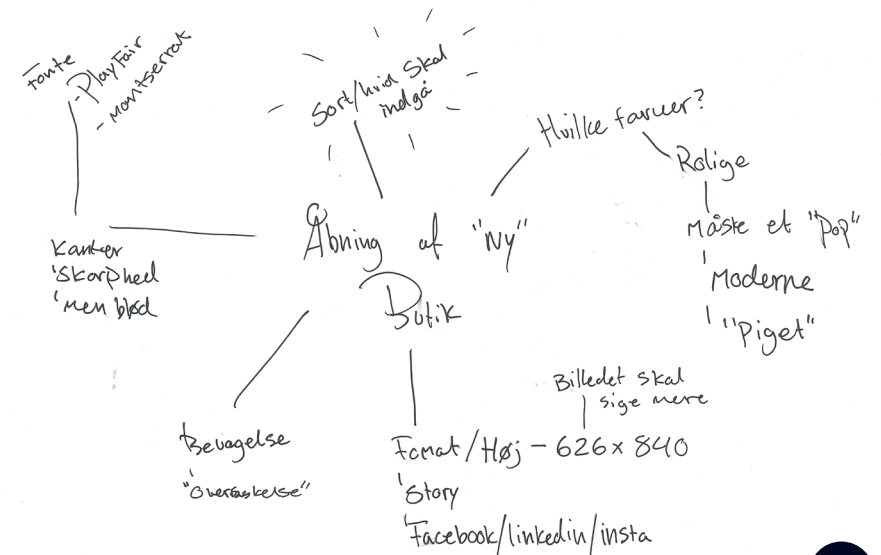 Fonte
- PlayFair
- Montserrat
Sort/hvid Skal
indgå
Hvilke farver?
Rolige
Måske et "Pop"
Moderne
"Piget"
Åbning af "Ny"
Butik
Kanter
Skarphed
Men blød
Bevægelse
"Overraskelse"
Billedet skal
sige mere
Format/Høj - 626x840
Story
Facebook/linkedin/insta